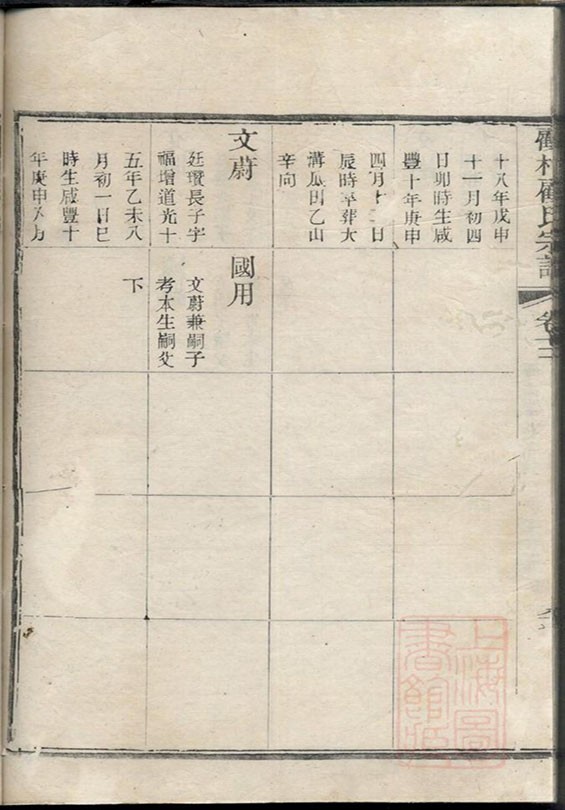 村顧氏宗譜
卷十二
十八年戊申
十一月初四
日卯時生咸
豐十年庚申
四月十二日
辰時卒葬大
溝瓜田乙山
辛向
文蔚
廷瓚長子字
福增道光十
五年乙未八
月初一日巳
時生咸豐十
年庚申八月
國用
文蔚兼嗣子
考本生嗣父
下
上海圖
書館藏